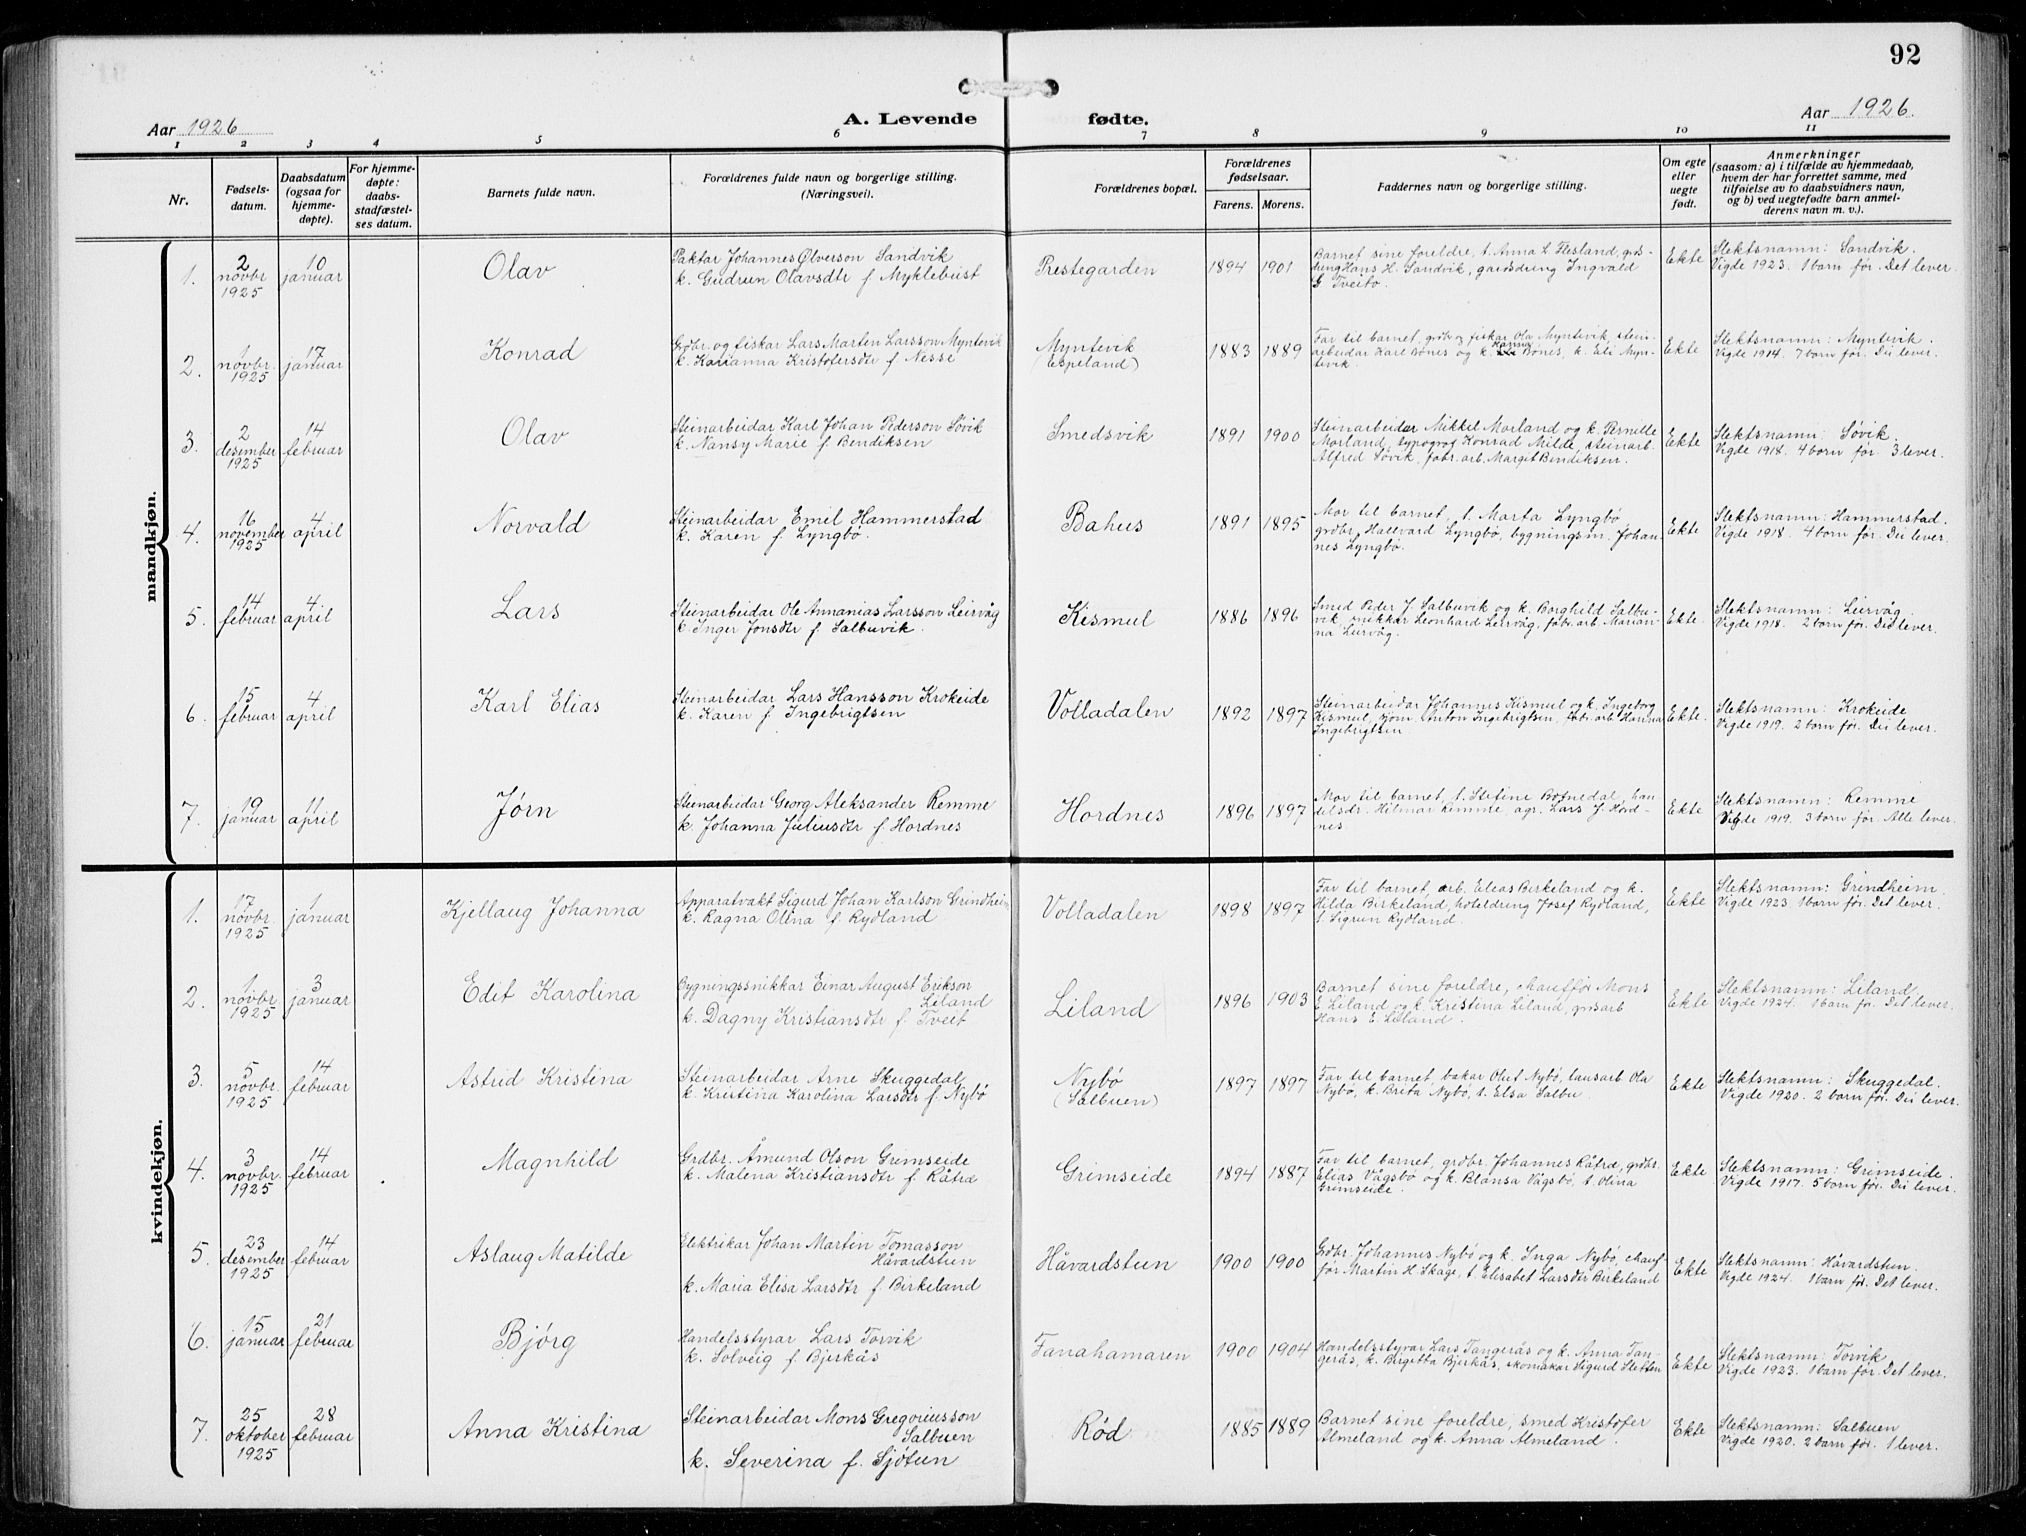 92
Aar 1926
A. Levende fødte.
Aar 1926.
1 2 3 4 5 6 7 8 9 10 11
Nr.
Fødsels-
datum.
Daabsdatum
(ogsaa for
hjemme-
døpte).
For hjemme-
døpte:
daabs-
stadfæstel-
ses datum.
Barnets fulde navn.
Forældrenes fulde navn og borgerlige stilling.
(Næringsvei).
Forældrenes bopæl.
Forældrenes
fødselsaar.
Farens. Morens.
Faddernes navn og borgerlige stilling.
Om egte
eller
uegte
født.
Anmerkninger
(saasom: a) i tilfælde av hjemmedaab,
hvem der har forrettet samme, med
tilføielse av to daabsvidners navn,
og b) ved uegtefødte barn anmel-
derens navn m. v.).
mandkjøn.
1.
2
novbr
1925
10
januar
Olav
Paktar Johannes Ølverson Sandvik
k. Gudrun Olavsdtr f. Myklebust
Prestegarden
1894 1901
Barnet sine foreldre, t. Anna L Flesland, grs-
drung Hans H. Sandvik, gardsdrung Ingvald
G Tveito.
Ekte
Slektsnamn: Sandvik.
Vigde 1923. 1 barn før. Det lever.
2.
1
novbr.
1925
17
januar
Konrad
Grdbr. og fiskar Lars Marten Larsson Myntevik
k. Karianna Kristofersdtr f. Nesse
Myntevik
(Espeland)
1883 1889
Far til barnet, grdbr og fiskar Ola Myntevik, stein-
arbeidar Karl Bønes og k. Hanna Bønes, k. Eli Myn-
tevik.
Ekte
Slektsnamn: Myntevik.
Vigde 1914. 7 born før. Dei lever.
3.
2
desember
1925
14
februar
Olav
Steinarbeidar Karl Johan Pederson Søvik
k. Nansy Marie f. Bendiksen
Smedsvik
1891 1900
Steinarbeidar Mikkel Morland og k. Pernille
Morland, typograf Konrad Milde, steinarb.
Alfred Søvik, fabr. arb. Margit Bendiksen.
Ekte
Slektsnamn: Søvik.
Vigde 1918. 4 born før. 3 lever.
4.
16
november
1925
4
april
Norvald
Steinarbeidar Emil Hammerstad
k. Karen f. Lyngbø.
Bahus
1891 1895
Mor til barnet, t. Marta Lyngbø,
grdbr. Hallvard Lyngbø, bygningsm. Johan-
nes Lyngbø.
Ekte
Slektsnamn: Hammerstad.
Vigde 1918. 4 born før. Dei lever.
5.
14
februar
4
april
Lars
Steinarbeidar Ole Annanias Larsson Leirvåg
k. Inger Jonsdtr f. Salbuvik.
Kismul
1886 1896
Smed Peder J. Salbuvik og k. Borghild Salbu-
vik, snikkar Leonhard Leirvåg, fabr. arb. Marian-
na Leirvåg.
Ekte.
Slektsnamn: Leirvåg.
Vigde 1918. 2 born før. Dei lever.
6.
15
februar
4
april
Karl Elias
Steinarbeidar Lars Hansson Krokeide
k. Karen f. Ingebrigtsen
Volladalen
1892 1897
Steinarbeidar Johannes Kismul og k. Ingeborg
Kismul, sjøm. Anton Ingebrigtsen, fabr. arb Hanna
Ingebrigtsen
Ekte.
Slektsnamn: Krokeide
Vigde 1919. 2 born før. Dei lever.
7.
19
januar
11
april
Jørn
Steinarbeidar Georg Aleksander Remme
k. Johanna Juliusdtr f. Hordnes
Hordnes
1896 1897
Mor til barnet, t. Stetine Botnedal, han-
delsdr. Hilmar Remme, agr. Lars J. Hord-
nes.
Ekte
Slektsnamn: Remme
Vigde 1919. 3 born før. Alle lever.
kvindekjøn.
1.
17
novbr.
1925
1
januar
Kjellaug Johanna
Apparatvakt Sigurd Johan Karlson Grindheim
k. Ragna Olina f. Rydland
Volladalen
1898 1897
Far til barnet, arb. Elias Birkeland og k.
Hilda Birkeland, hoteldrung Josef Rydland,
t. Sigrun Rydland.
Ekte
Slektsnamn: Grindheim.
Vigde 1923 1 barn før. Det lever.
2.
1
novbr
1925
3
januar
Edit Karolina
Bygningssnikkar Einar August Erikson
Liland
k. Dagny Kristiansdtr f. Tveit
Liland
1896 1903
Barnet sine foreldre, chauffør Mons
E Liland og k. Kristina Liland, grdsarb
Hans E. Liland.
Ekte
Slektsnamn: Liland.
Vigde 1924. 1 barn før. Det lever.
3.
5
novbr.
1925
14
februar
Astrid Kristina
Steinarbeidar Arne Skuggedal,
k. Kristina Karolina Larsdtr f. Nybø
Nybø
(Salbuen)
1897 1897
Far til barnet, bakar Oluf Nybø, lausarb. Ola
Nybø, k. Brita Nybø, t. Elsa Salbu.
Ekte
Slektsnamn: Skuggedal.
Vigde 1920. 2 born før. Dei lever.
4.
3
novbr.
1925
14
februar
Magnhild
Grdbr. Åmund Olson Grimseide
k. Malena Kristiansdtr f. Råtræ
Grimseide
1894 1887
Far til barnet, grdbr. Johannes Råtræ, grdbr.
Elias Vågsbø og k. Blansa Vågsbø, t. Olina
Grimseide.
Ekte
Slektsnamn: Grimseide.
Vigde 1917. 5 born før. Dei lever.
5.
23
desember
1925
14
februar
Aslaug Matilde
Elektrikar Johan Martin Tomasson
Håvardstun
k. Maria Elisa Larsdtr f. Birkeland
Håvardstun
1900 1900
Grdbr. Johannes Nybø og k. Inga Nybø, chauf-
før Martin H. Skage, t. Elisabet Larsdtr Birkeland
Ekte
Slektsnamn: Håvardstun.
Vigde 1924. 1 barn før. Det lever.
6.
15
januar
21
februar
Bjørg
Handelsstyrar Lars Torvik
k. Solveig f. Bjerkås
Fanahamaren
1900 1904
Handelsstyrar Lars Tangerås og k. Anna Tan-
gerås, k. Birgitta Bjerkås, skomakar Sigurd Sletten
Ekte
Slektsnamn: Torvik
Vigde 1923. 1 barn før. Det lever.
7.
25
oktober
1925
28
februar
Anna Kristina
Steinarbeidar Mons Gregoriusson
Salbuen
k. Severina f. Sjøtun
Rød
1885 1889
Barnet sine foreldre, smed Kristofer
Almeland og k. Anna Almeland.
Ekte
Slektsnamn: Salbuen
Vigde 1920. 2 born før. 1 lever.